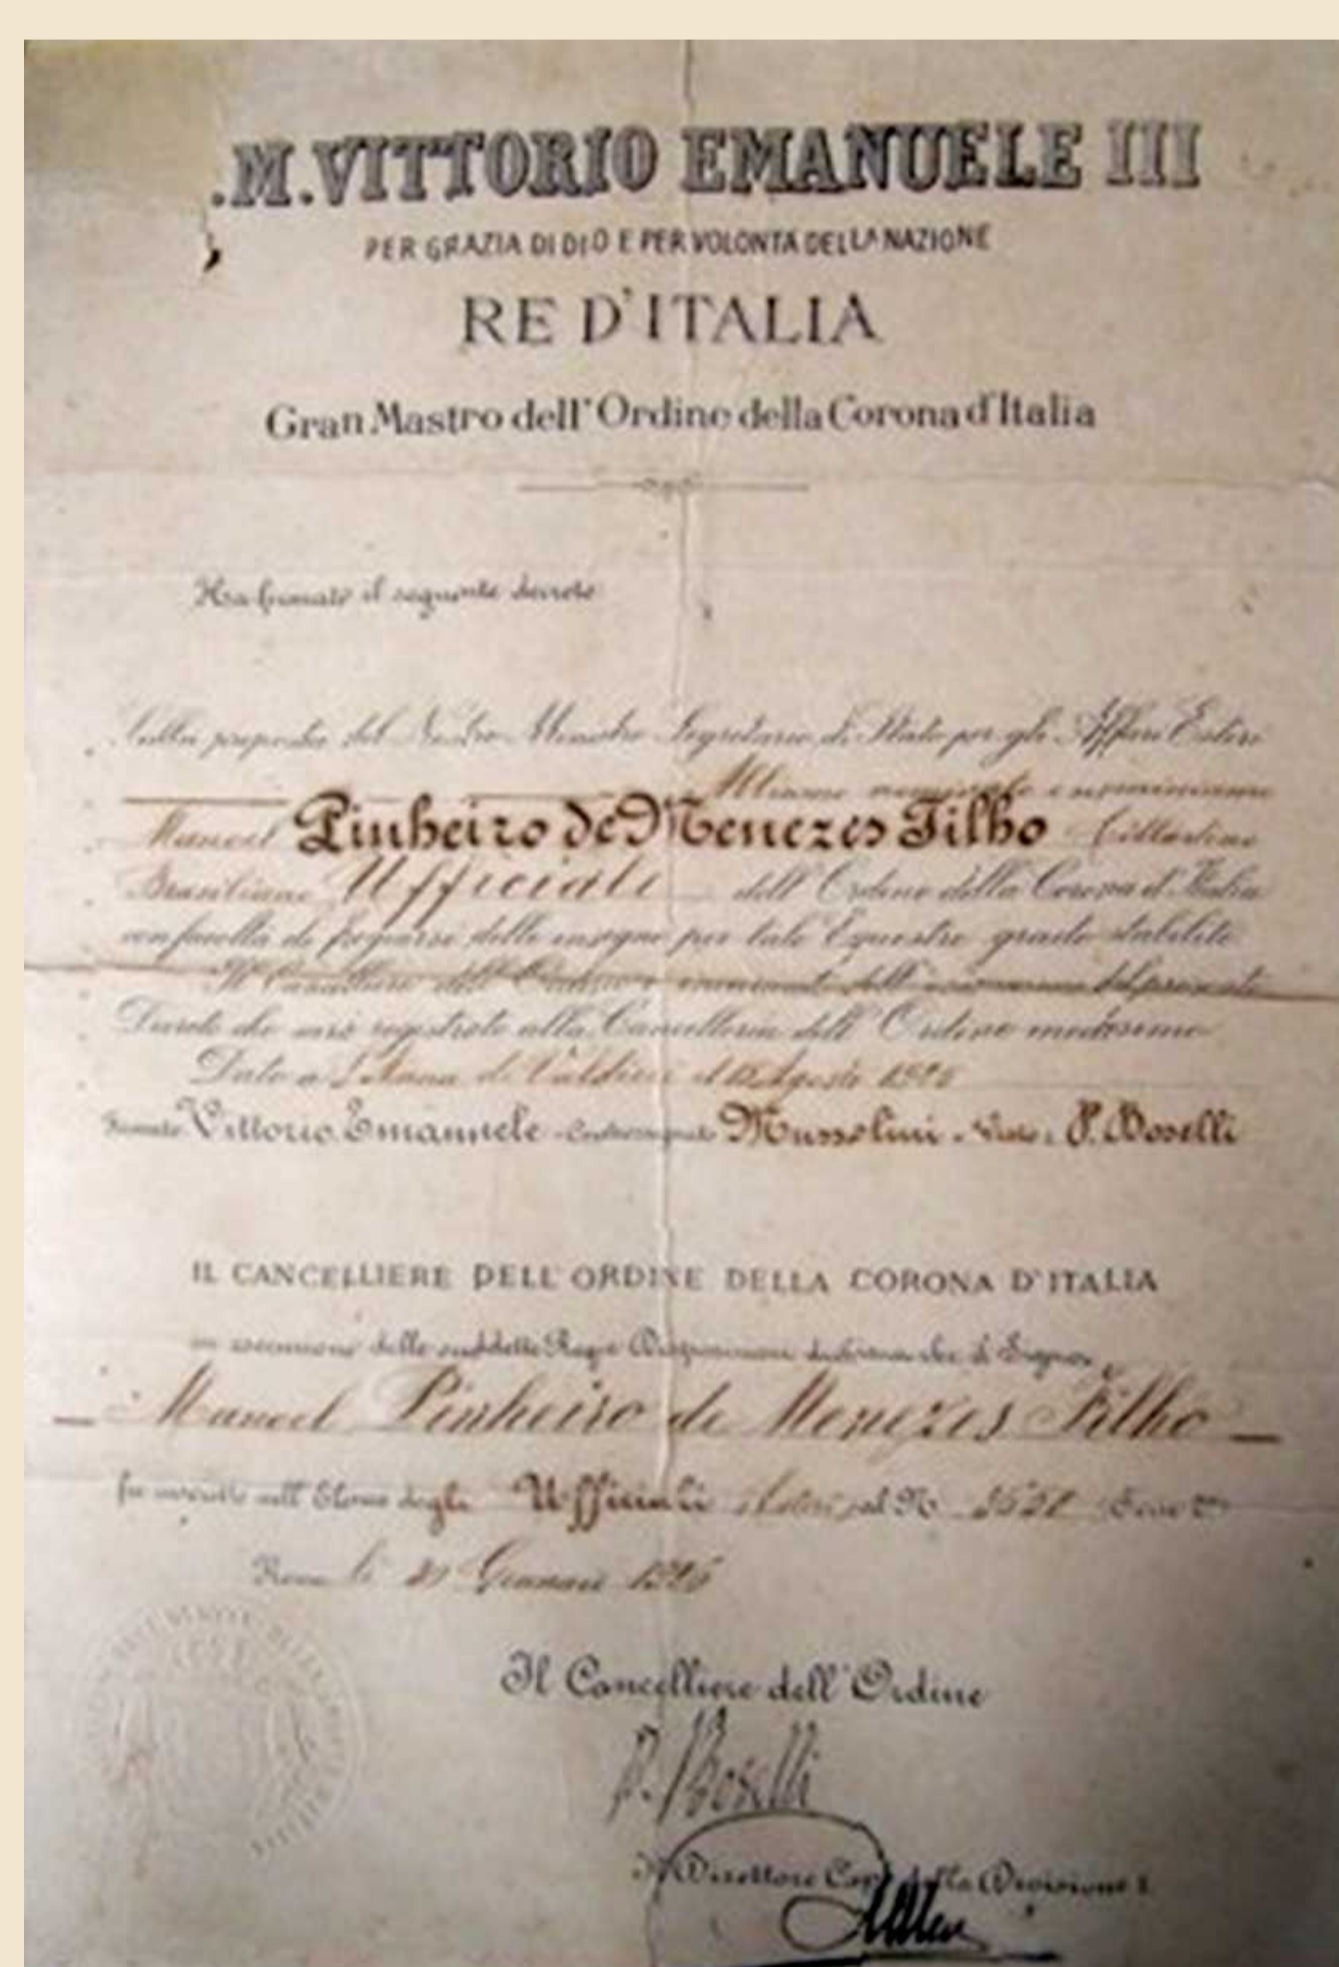 .M. VITTORIO EMANUELE III
PER GRAZIA DI DIO E PER VOLONTÀ DELLA NAZIONE
RE D'ITALIA
Gran Mastro dell'Ordine della Corona d'Italia
Ha firmato il seguente decreto:
Sulla proposta del Nostro Ministro Segretario di Stato per gli Affari Esteri
Abbiamo nominato e nominiamo
Manoel Pinheiro de Menezes Filho Cittadino
Brasiliano Ufficiale dell'Ordine della Corona d'Italia
con facoltà di fregiarsi delle insegne per tale Equestre grado stabilite
Il Cancelliere dell'Ordine è dell' del presente
Decreto che sarà registrato alla Cancelleria dell'Ordine medesimo
Dato a S. Anna di Valdieri Agosto
Firmato Vittorio Emanuele Controsegnato Mussolini Visto: P. Boselli
IL CANCELLIERE DELL'ORDINE DELLA CORONA D'ITALIA
in esecuzione delle suddette Regie Disposizioni dichiara che il Signor
Manoel Pinheiro de Menezes Filho
fu inscritto nell'Elenco degli Ufficiali Esteri al N°
Roma li Gennaio
Il Cancelliere dell'Ordine
P. Boselli
Il Direttore Capo della Divisione